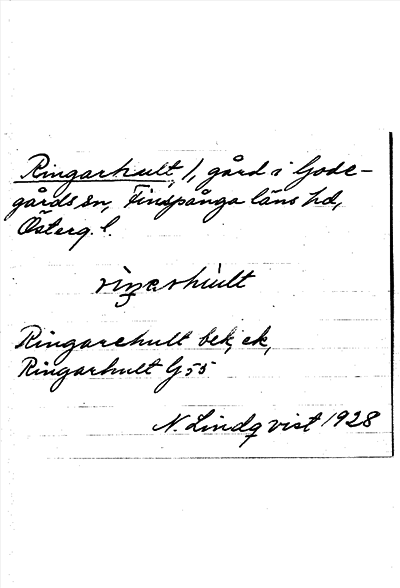 Ringarhult, /, gård i Gode-
gårds sn, Finspånga läns hd,
Österg. l.
Ringarehult bek, ek,
Ringarhult G 55
N. Lindqvist 1928